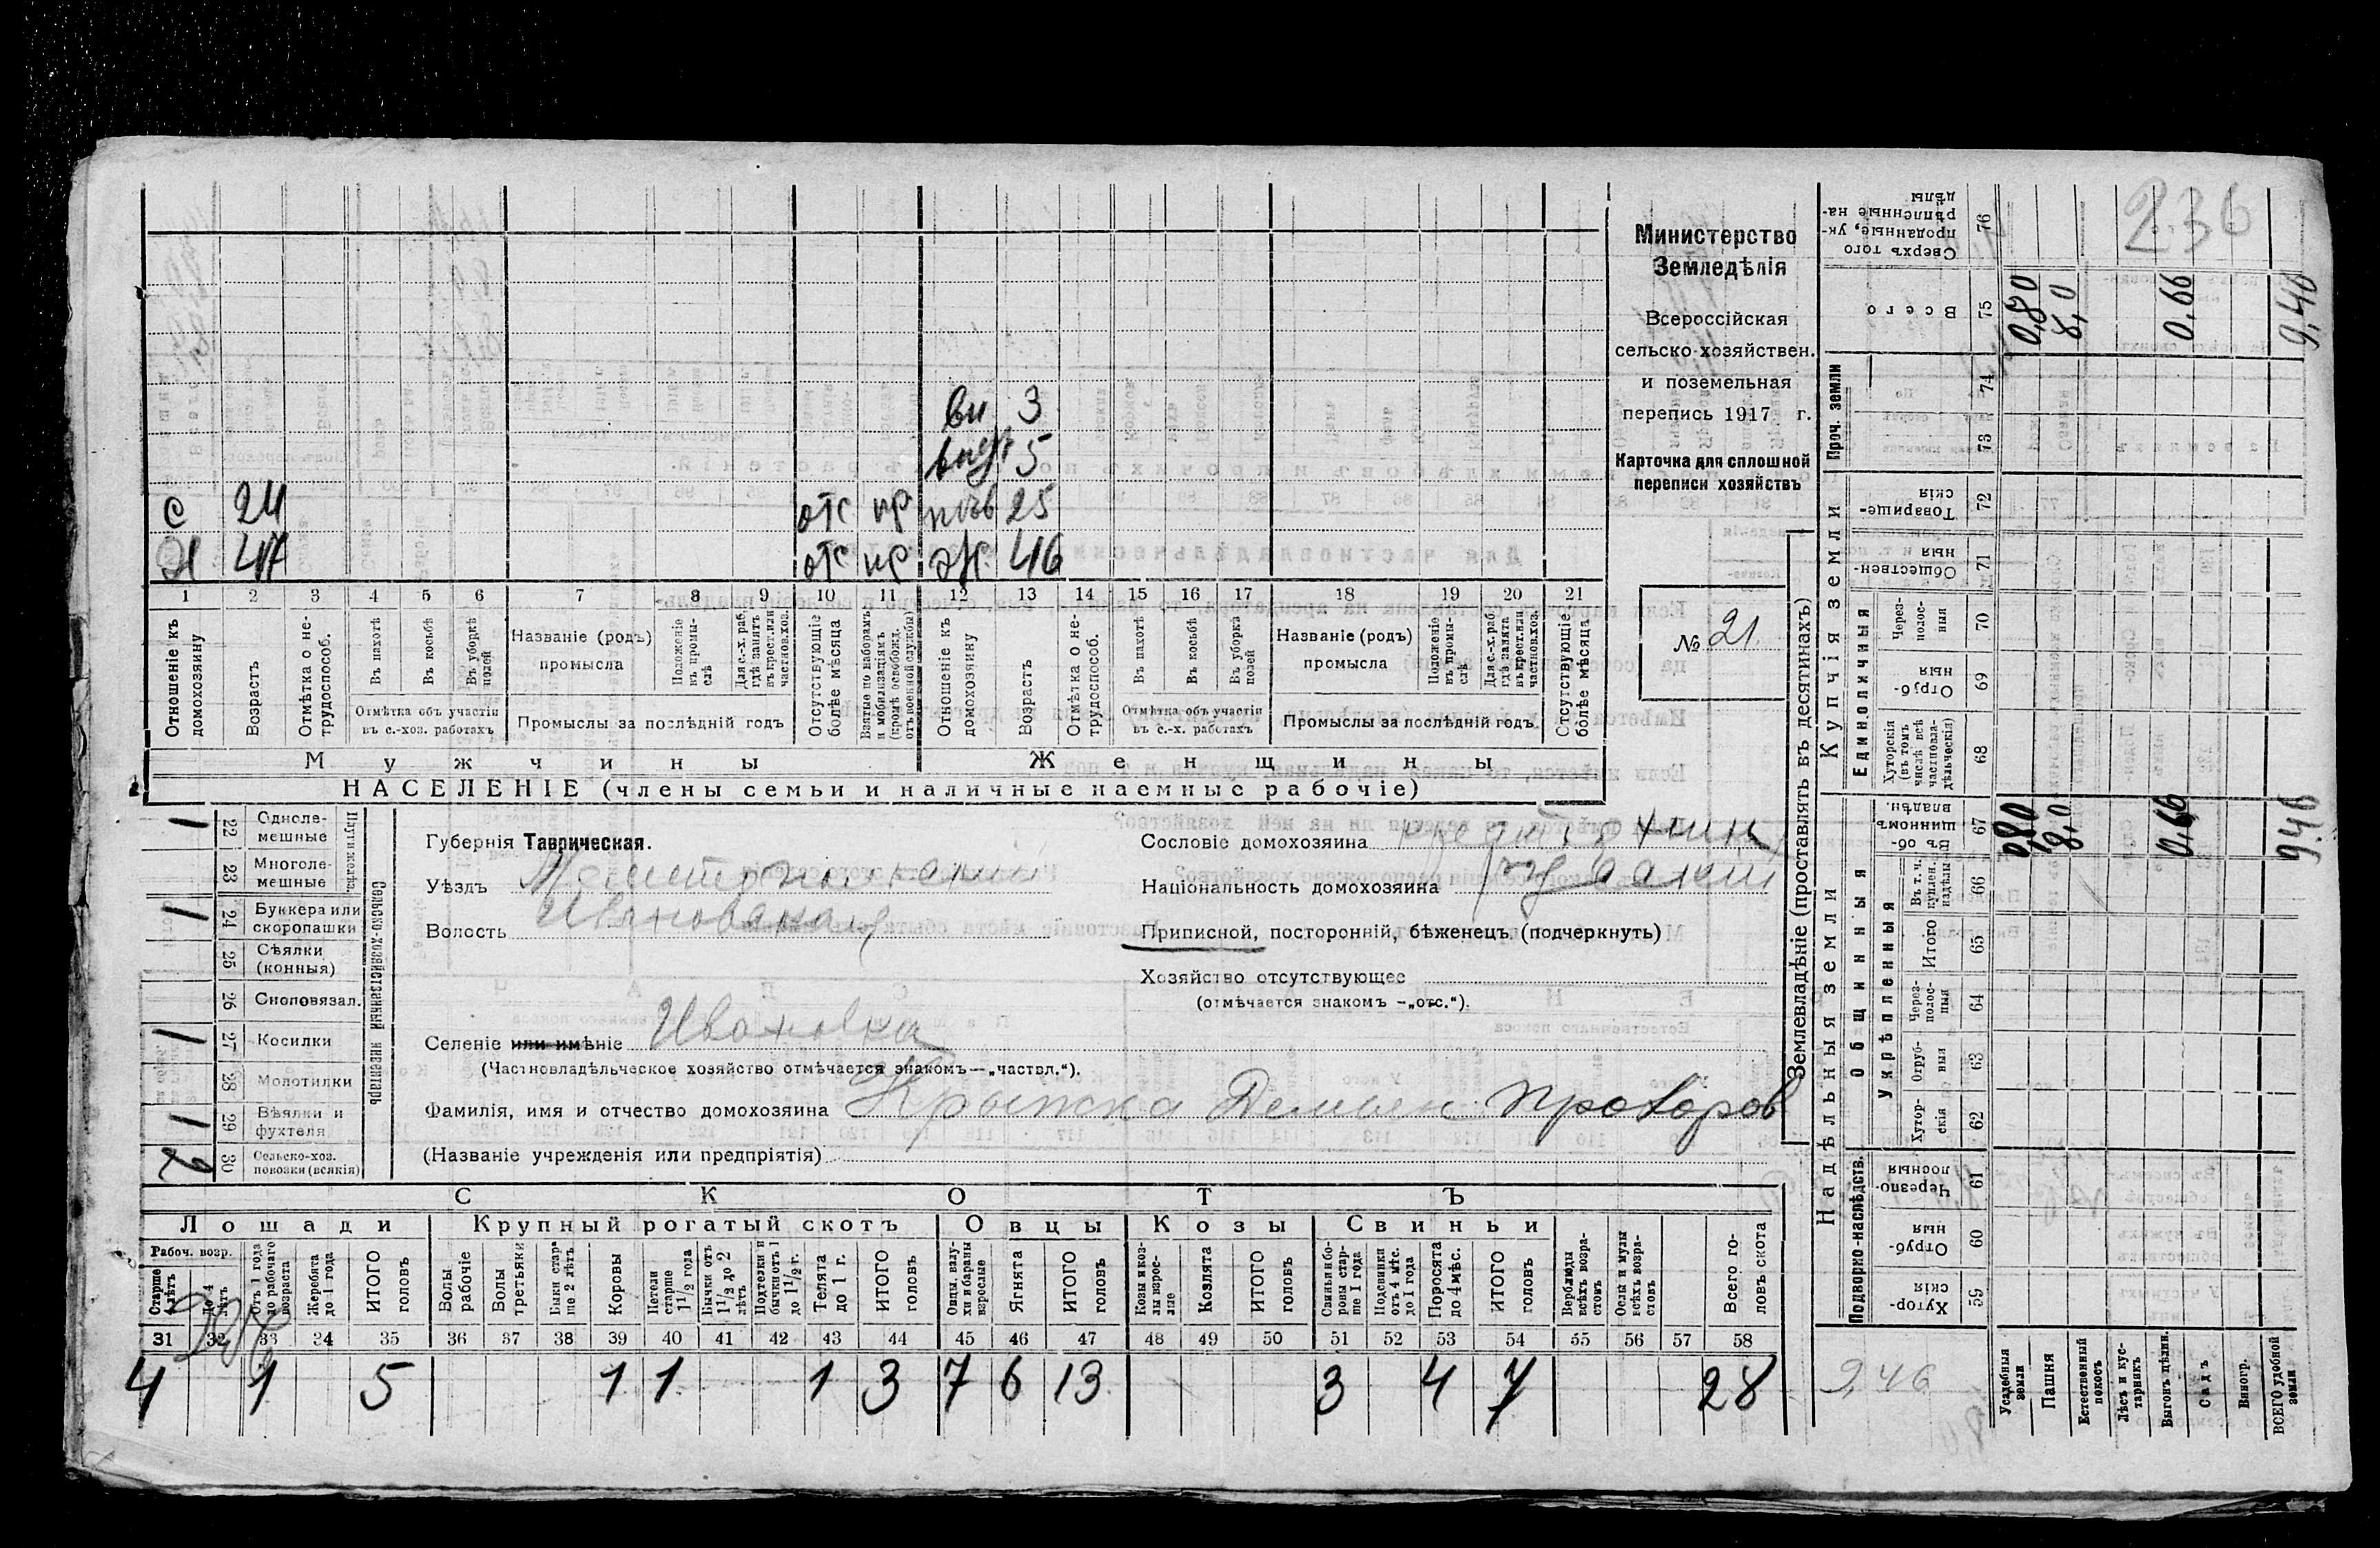 236
Министерство
Земледѣлія
Всероссійская
сельско-хозяйствен.
и поземельная
перепись 1917 г.
Карточка для сплошной
переписи хозяйствъ
№ 21
3
5
с 24 отс 25
Х 47 отс Ж. 46
1 2 3 4 5 6 7 8 9 10 11 12 13 14 15 16 17 18 19 20 21
Отношеніе къ домохозяину
Возрастъ
Отмѣтка о не-трудоспособ.
Въ пахотѣ
Въ косьбѣ
Въ уборкѣ полей
Отмѣтка объ участіи въ с.-хоз. работахъ
Названіе (родъ) промысла
Положеніе въ промы-слѣ
Для с.-х. раб. гдѣ занятъ въ крест. или частнов. хоз.
Промыслы за послѣдній годъ
Отсутствующіе болѣе мѣсяца
Взятые по наборамъ и мобилизаціямъ (кромѣ освобожд. отъ военной службы)
Отношеніе къ домохозяину
Возрастъ
Отмѣтка о не-трудоспособ.
Въ пахотѣ
Въ косьбѣ
Въ уборкѣ полей
Отмѣтка объ участіи въ с.-х. работахъ
Названіе (родъ) промысла
Положеніе въ промы-слѣ
Для с.-х. раб. гдѣ занята въ крест. или частнов. хоз.
Промыслы за послѣдній годъ
Отсутствующіе болѣе мѣсяца
Мужчины Женщины
НАСЕЛЕНІЕ (члены семьи и наличные наемные рабочіе)
Сельско-хозяйственный инвентарь
Плуги желѣз.
1 22 Одноле-мешные
23 Многоле-мешные
1 24 Буккера или скоропашки
25 Сѣялки (конныя)
26 Сноповязал.
1 27 Косилки
28 Молотилки
1 29 Вѣялки и фухтеля
2 30 Сельско-хоз. повозки (всякія)
Губернія Таврическая.
Уѣздъ Мелитопольскій
Волость Ивановская
Сословіе домохозяина
Національность домохозяина
Приписной, посторонній, бѣженецъ (подчеркнуть)
Хозяйство отсутствующее
(отмѣчается знакомъ -„отс.“).
Селеніе или имѣніе Ивановка
(Частновладѣльческое хозяйство отмѣчается знакомъ—„частвл.“).
Фамилія, имя и отчество домохозяина Крыпка Демьян Прохоров
(Названіе учрежденія или предпріятія)
СКОТЪ
Лошади Крупный рогатый скотъ Овцы Козы Свиньи
Рабоч. возр.
Старше 4 лѣтъ
До 4 лѣтъ
Отъ 1 года до рабочаго возраста
Жеребята до 1 года
ИТОГО головъ
Волы рабочіе
Волы третьяки
Быки старше 2 лѣтъ
Коровы
Нетели старше 1 1/2 года
Бычки отъ 1 1/2 до 2 лѣтъ
Подтелки и бычки отъ 1 до 1 1/2 г.
Телята до 1 г.
ИТОГО головъ
Овцы, валухи и бараны взрослые
Ягнята
ИТОГО головъ
Козы и козлы взрослые
Козлята
ИТОГО головъ
Свиньи и боровы старше 1 года
Подсвинки отъ 4 мѣс. до 1 года
Поросята до 4 мѣс.
ИТОГО головъ
Верблюды всѣхъ возрастовъ
Ослы и мулы всѣхъ возрастовъ
Всего головъ скота
31 32 33 34 35 36 37 38 39 40 41 42 43 44 45 46 47 48 49 50 51 52 53 54 55 56 57 58
4 1 5 1 1 1 3 7 6 13 3 4 7 28
Землевладѣніе (проставлять въ десятинахъ)
Надѣльныя земли
Купчія земли
Проч. земли
Подворно-наслѣдств.
Общинныя
Укрѣпленныя
Единоличныя
59 Хутор-скія
60 Отруб-ныя
61 Черезпо-лосныя
62 Хутор-скія
63 Отруб-ныя
64 Через-полос-ныя
65 Итого
66 Въ т. ч. куплен. надѣлы
67 Въ об-щинномъ владѣн.
68 Хуторскія (въ томъ числѣ всѣ частновла-дѣльческія)
69 Отруб-ныя
70 Через-полос-ныя
71 Обществен-ныя
72 Товарище-скія
73
74
75 Всего
76 Сверхъ того проданные, ук-рѣпленные на-дѣлы
Усадебныя земли 0,80 0,80
Пашня 8,0 8,0
Естественный покосъ
Лѣсъ и кус-тарникъ
Выгонъ цѣлин. 0,66 0,66
Садъ
Виногр.
ВСЕГО удобной земли 9,46 9,46
9,46